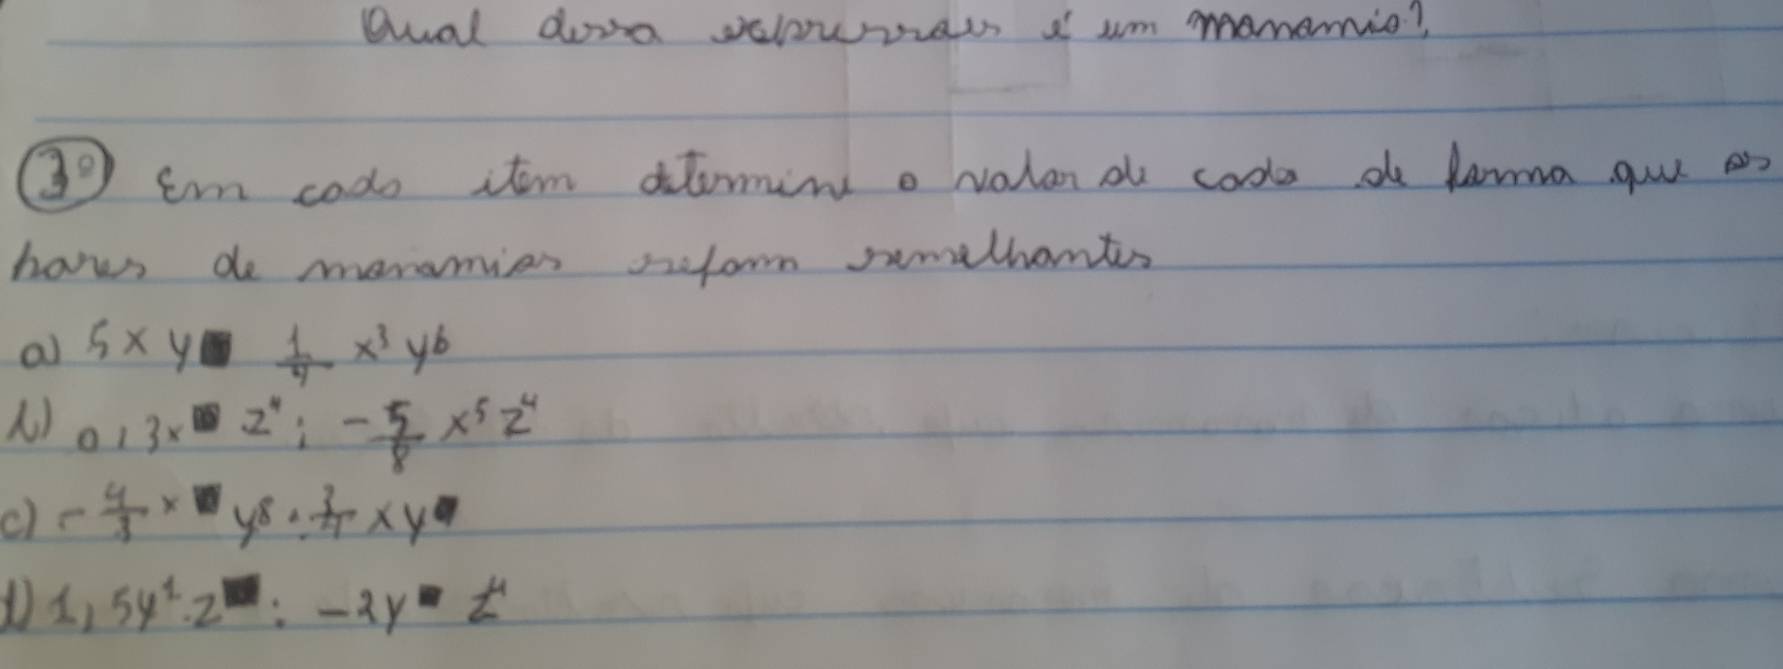 Qual dessa expressões é um monomio?
3º Em cada item determine o valor de cada de forma que os
pares de monomios sejam semelhantes
a) 5xy■ 1/4 x³y⁶
b) 0,3x■ z⁴; -5/8 x⁵z⁴
c) -4/3 x■ y⁸; xy■
d) 1,5y¹.z■; -2y■ z⁴